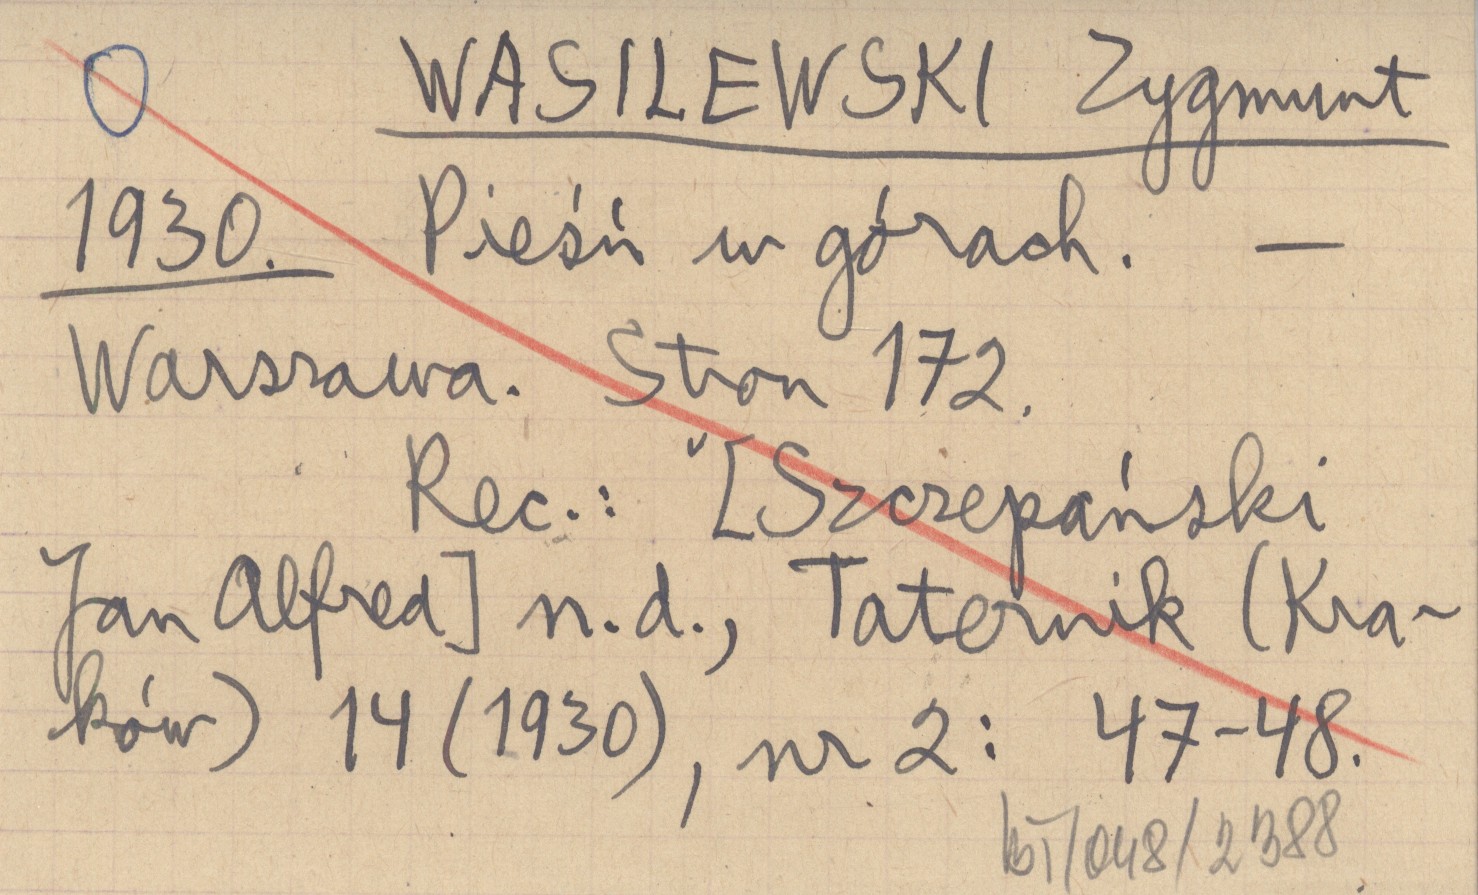 WASILEWSKI Zygmunt
1930. Pieśń w górach. —
Warszawa. Stron 172.
Rec.: [Szczepański
Jan Alfred] n.d., Taternik (Kra-
ków) 14 (1930), nr 2: 47-48.
/048/2388